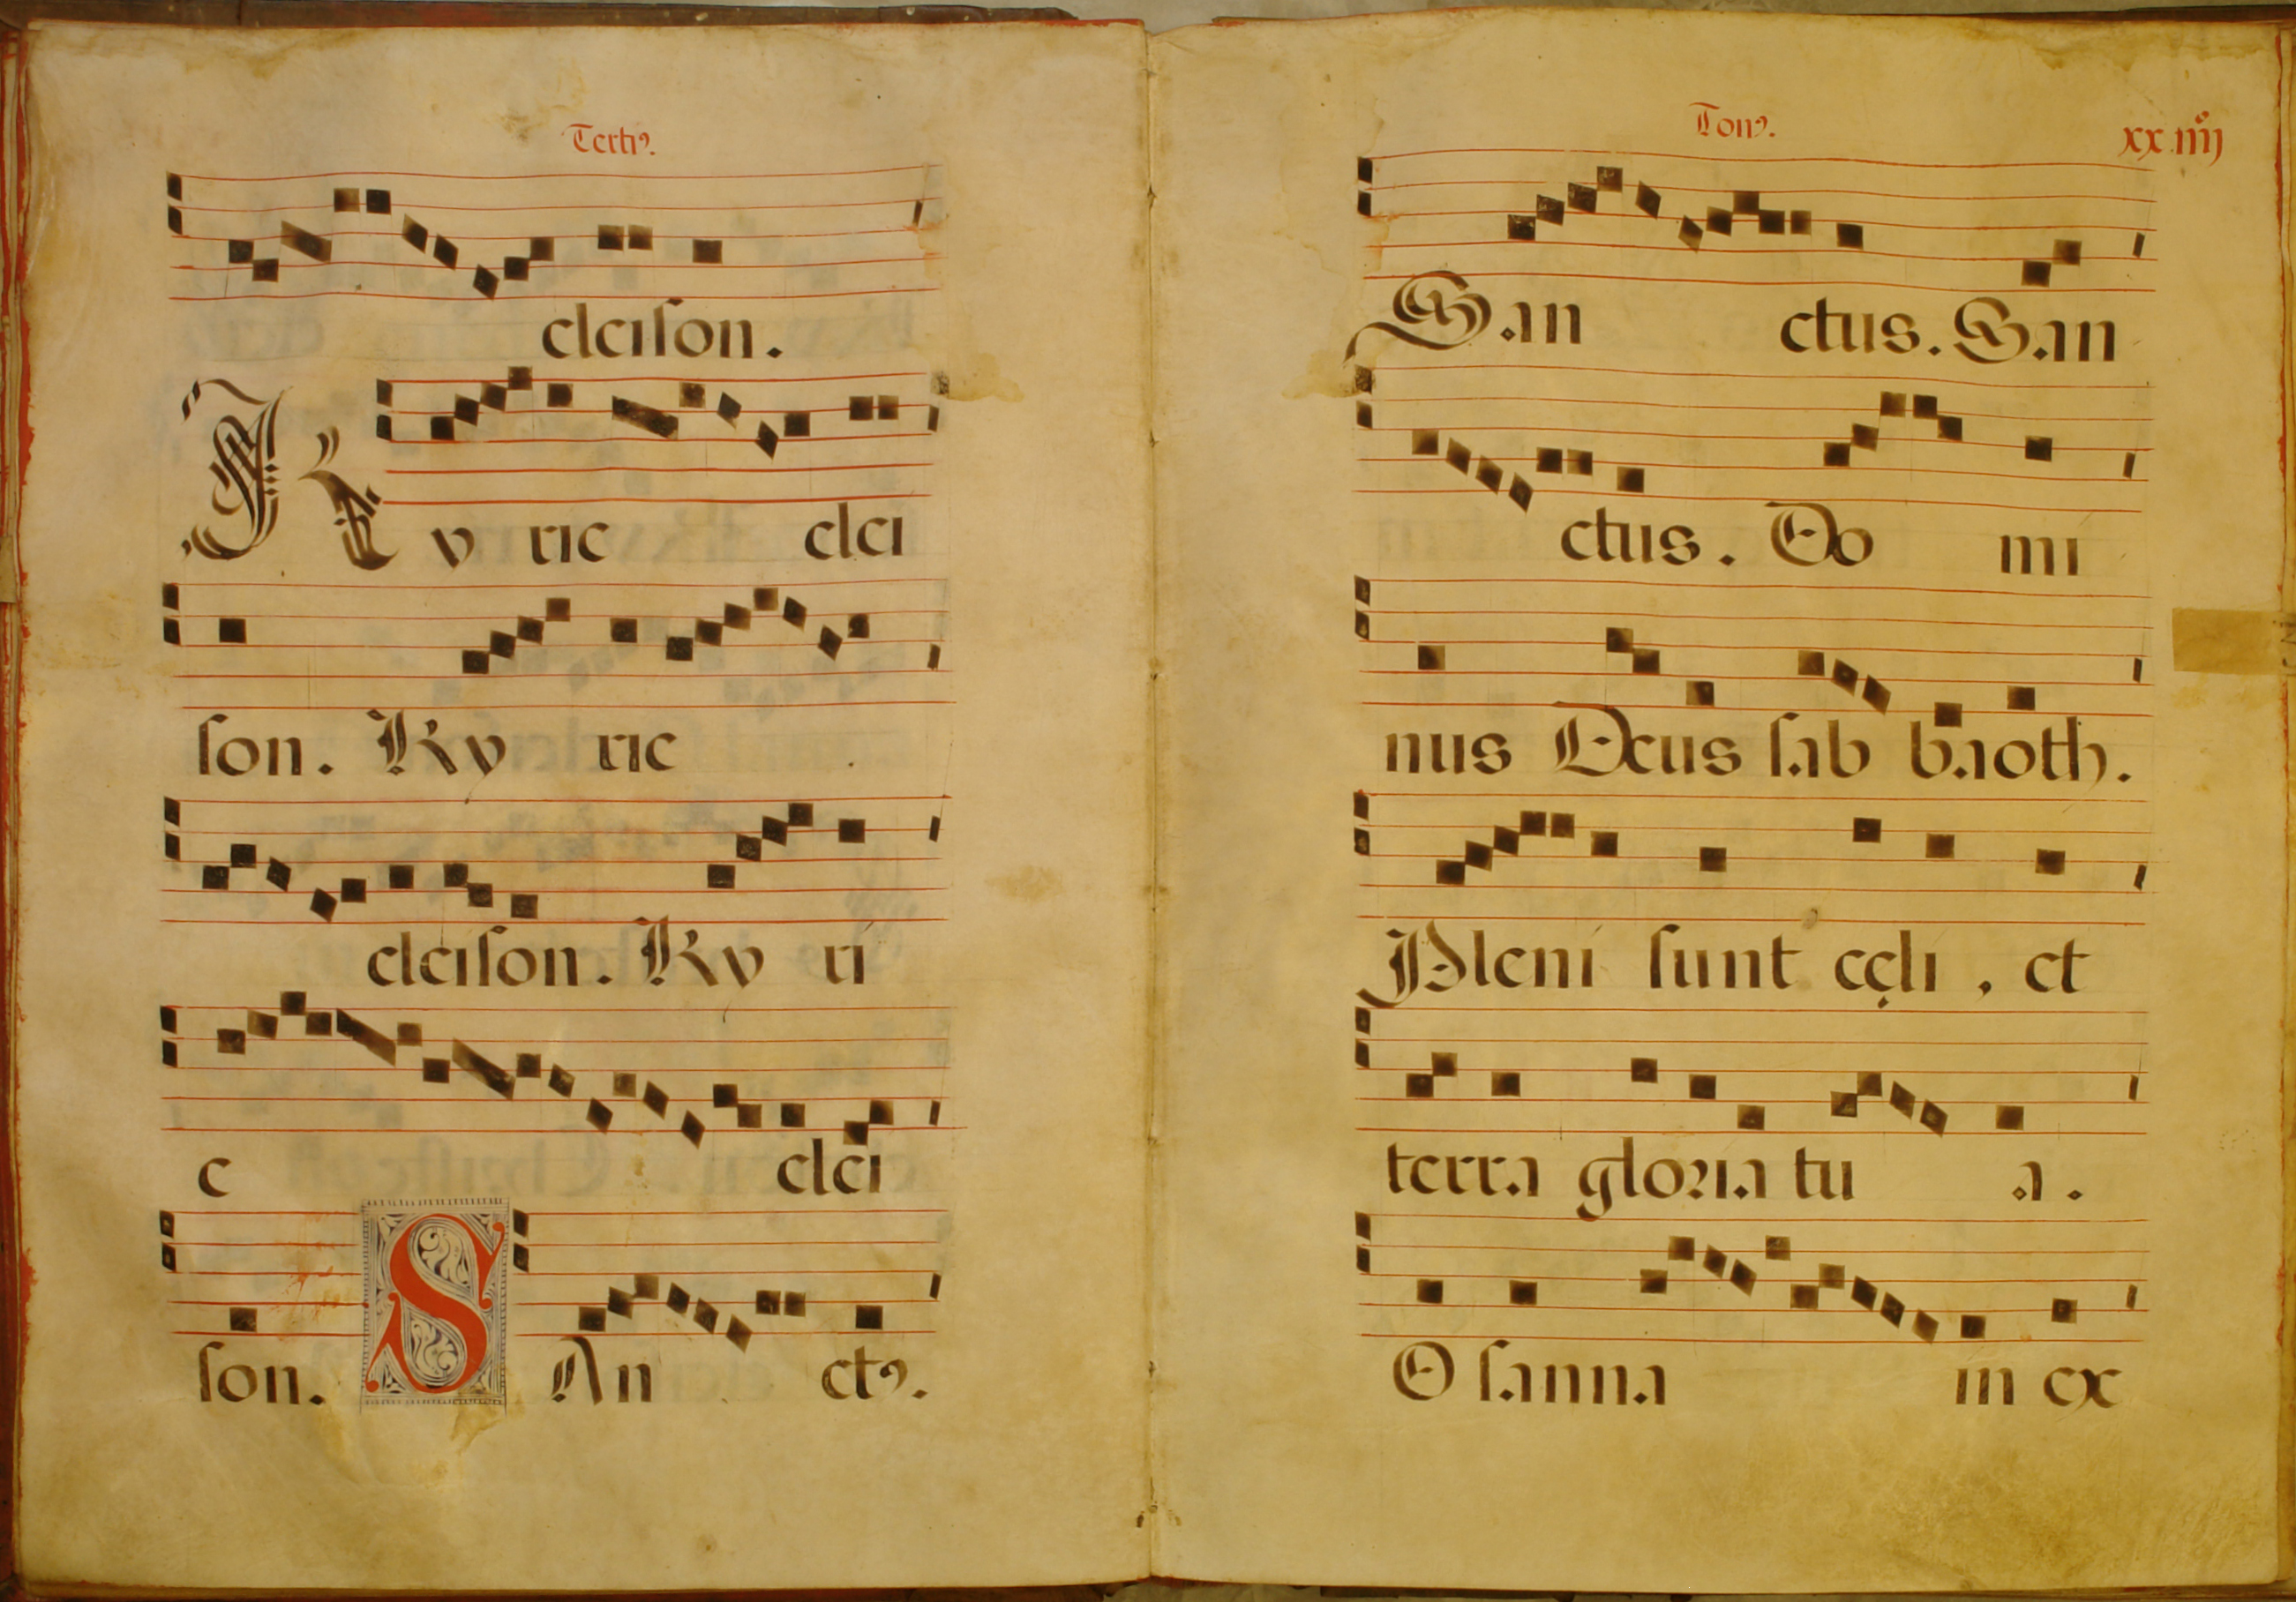 Terti⁹.
eleiſon.
Ky rie elei
ſon. Ky rie
eleiſon. Ky ri
e elei
ſon. S An ct⁹.
Ton⁹. xx iiij
San ctus. San
ctus. Do mi
nus Deus ſab baoth.
Pleni ſunt cęli, et
terra gloria tu a.
O ſanna in ex